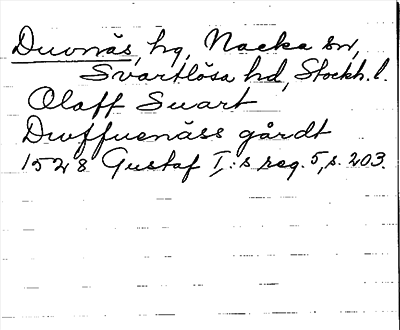 Duvnäs, hg, Nacka sn,
Svartlösa hd, Stockh. l.
Olaff Suart
Dwffuenäss gårdt
1528 Gustaf I:s reg. 5, s. 203.